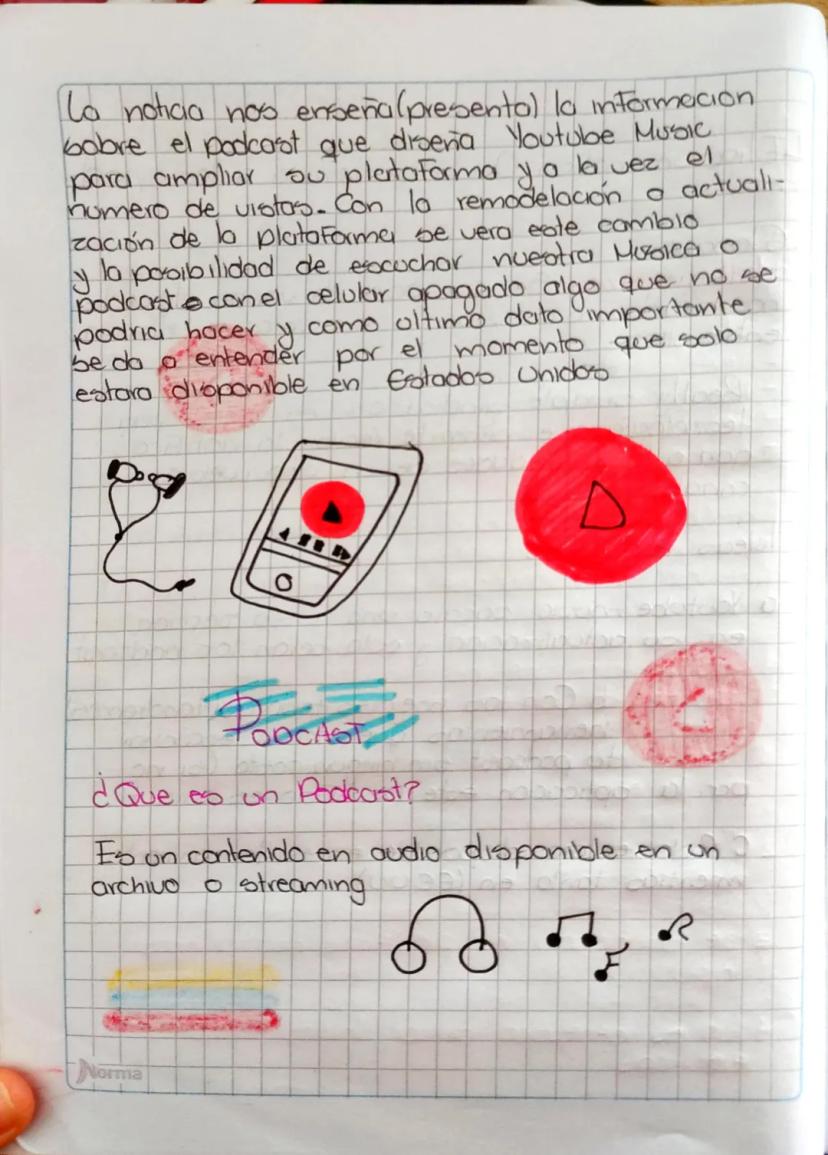 La noticia nos enseña (presenta) la informacion
sobre el podcast que diseña Youtube Music
para ampliar su plataforma y a la vez el
numero de vistas. Con la remodelación o actuali-
zación de la plataforma se vera este cambio
y la posibilidad de escuchar nuestra Musica o
podcast con el celular apagado algo que no se
podria hacer y como ultimo dato importante
se da a entender por el momento que solo
estara disponible en Estados Unidos
PODCAST
¿Que es un Podcast?
Es un contenido en audio disponible en un
archivo o streaming
Norma